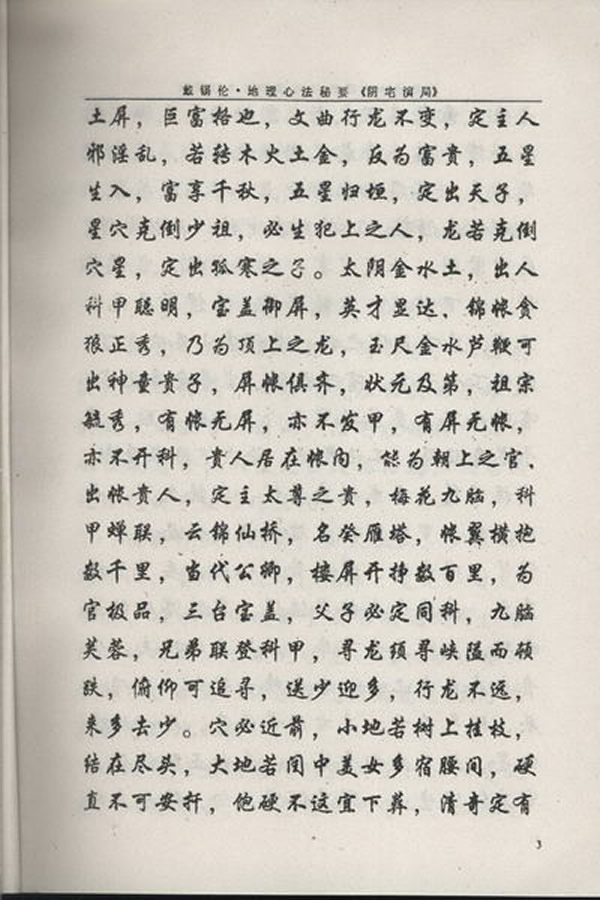 戴锡伦·地理心法秘要《阴宅演局》
土屏，巨富格也，文曲行龙不变，定主人
邪淫乱，若转木火土金，反为富贵，五星
生入，富享千秋，五星归垣，定出天子，
星穴克倒少祖，必生犯上之人，龙若克倒
穴星，定出孤寒之子。太阴金水土，出人
科甲聪明，宝盖御屏，英才显达、锦帐贪
狼正秀，乃为顶上之龙，玉尺金水芦鞭可
出神童贵子，屏帐俱齐，状元及第，祖宗
毓秀，有帐无屏，亦不发甲，有屏无帐，
亦不开科，贵人居在帐内，能为朝上之官、
出帐贵人，定主太尊之贵，梅花九脑，科
甲蝉联，云锦仙桥，名癸雁塔，帐翼横抱
数千里，当代公卿，楼屏开挣数百里，为
官极品，三台宝盖，父子必定同科，九脑
芙蓉，兄弟联登科甲，寻龙须寻峡隘而顿
跌，俯仰可追寻，送少迎多，行龙不远，
来多去少。穴必近前，小地若树上挂枝，
结在尽头，大地若闺中美女多宿腰间，硬
直不可安扦，饱硬不这宜下葬，清奇定有
3